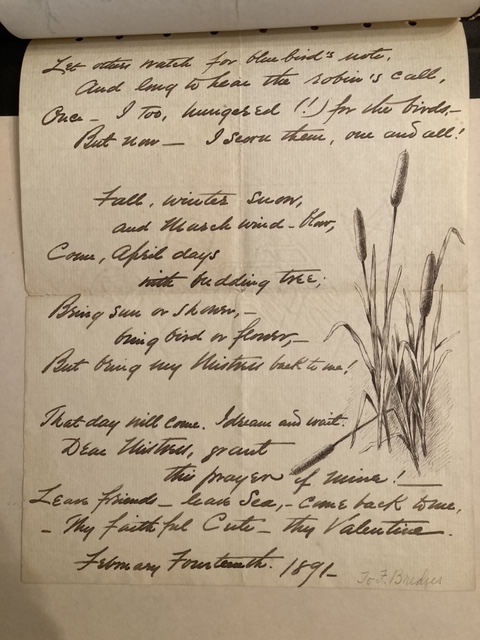 Let others watch for blue bird's note,
And long to hear the robin's call,
Once - I too, hungered (!) for the birds,-
But now - I scorn them, one and all!
Fall, winter snow,
and March wind - blow,
Come, April days
with budding tree;
Bring sun or shower,-
bring bird or flower,-
But bring my Mistress back to me!
That day will come. I dream and wait.
Dear Mistress, grant
this prayer of mine! -
Leave friends - leave Sea, - come back to me,
- Thy faithful Cute - thy Valentine.
February Fourteenth. 1891-
To F. Bridges